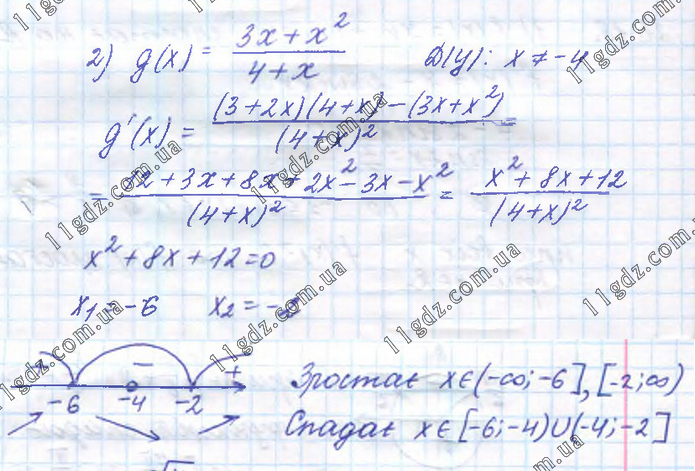 2) g(x) = (3x + x²)/(4 + x) D(y): x ≠ -4
g'(x) = ((3 + 2x)(4 + x) - (3x + x²))/(4 + x)² =
= (12 + 3x + 8x + 2x² - 3x - x²)/(4 + x)² = (x² + 8x + 12)/(4 + x)²
x² + 8x + 12 = 0
x₁ = -6 x₂ = -2
+ - +
-6 -4 -2
Зростає x ∈ (-∞; -6], [-2; ∞)
Спадає x ∈ [-6; -4) ∪ (-4; -2]
11gdz.com.ua
11gdz.com.ua
11gdz.com.ua
11gdz.com.ua
11gdz.com.ua
11gdz.com.ua
11gdz.com.ua
11gdz.com.ua